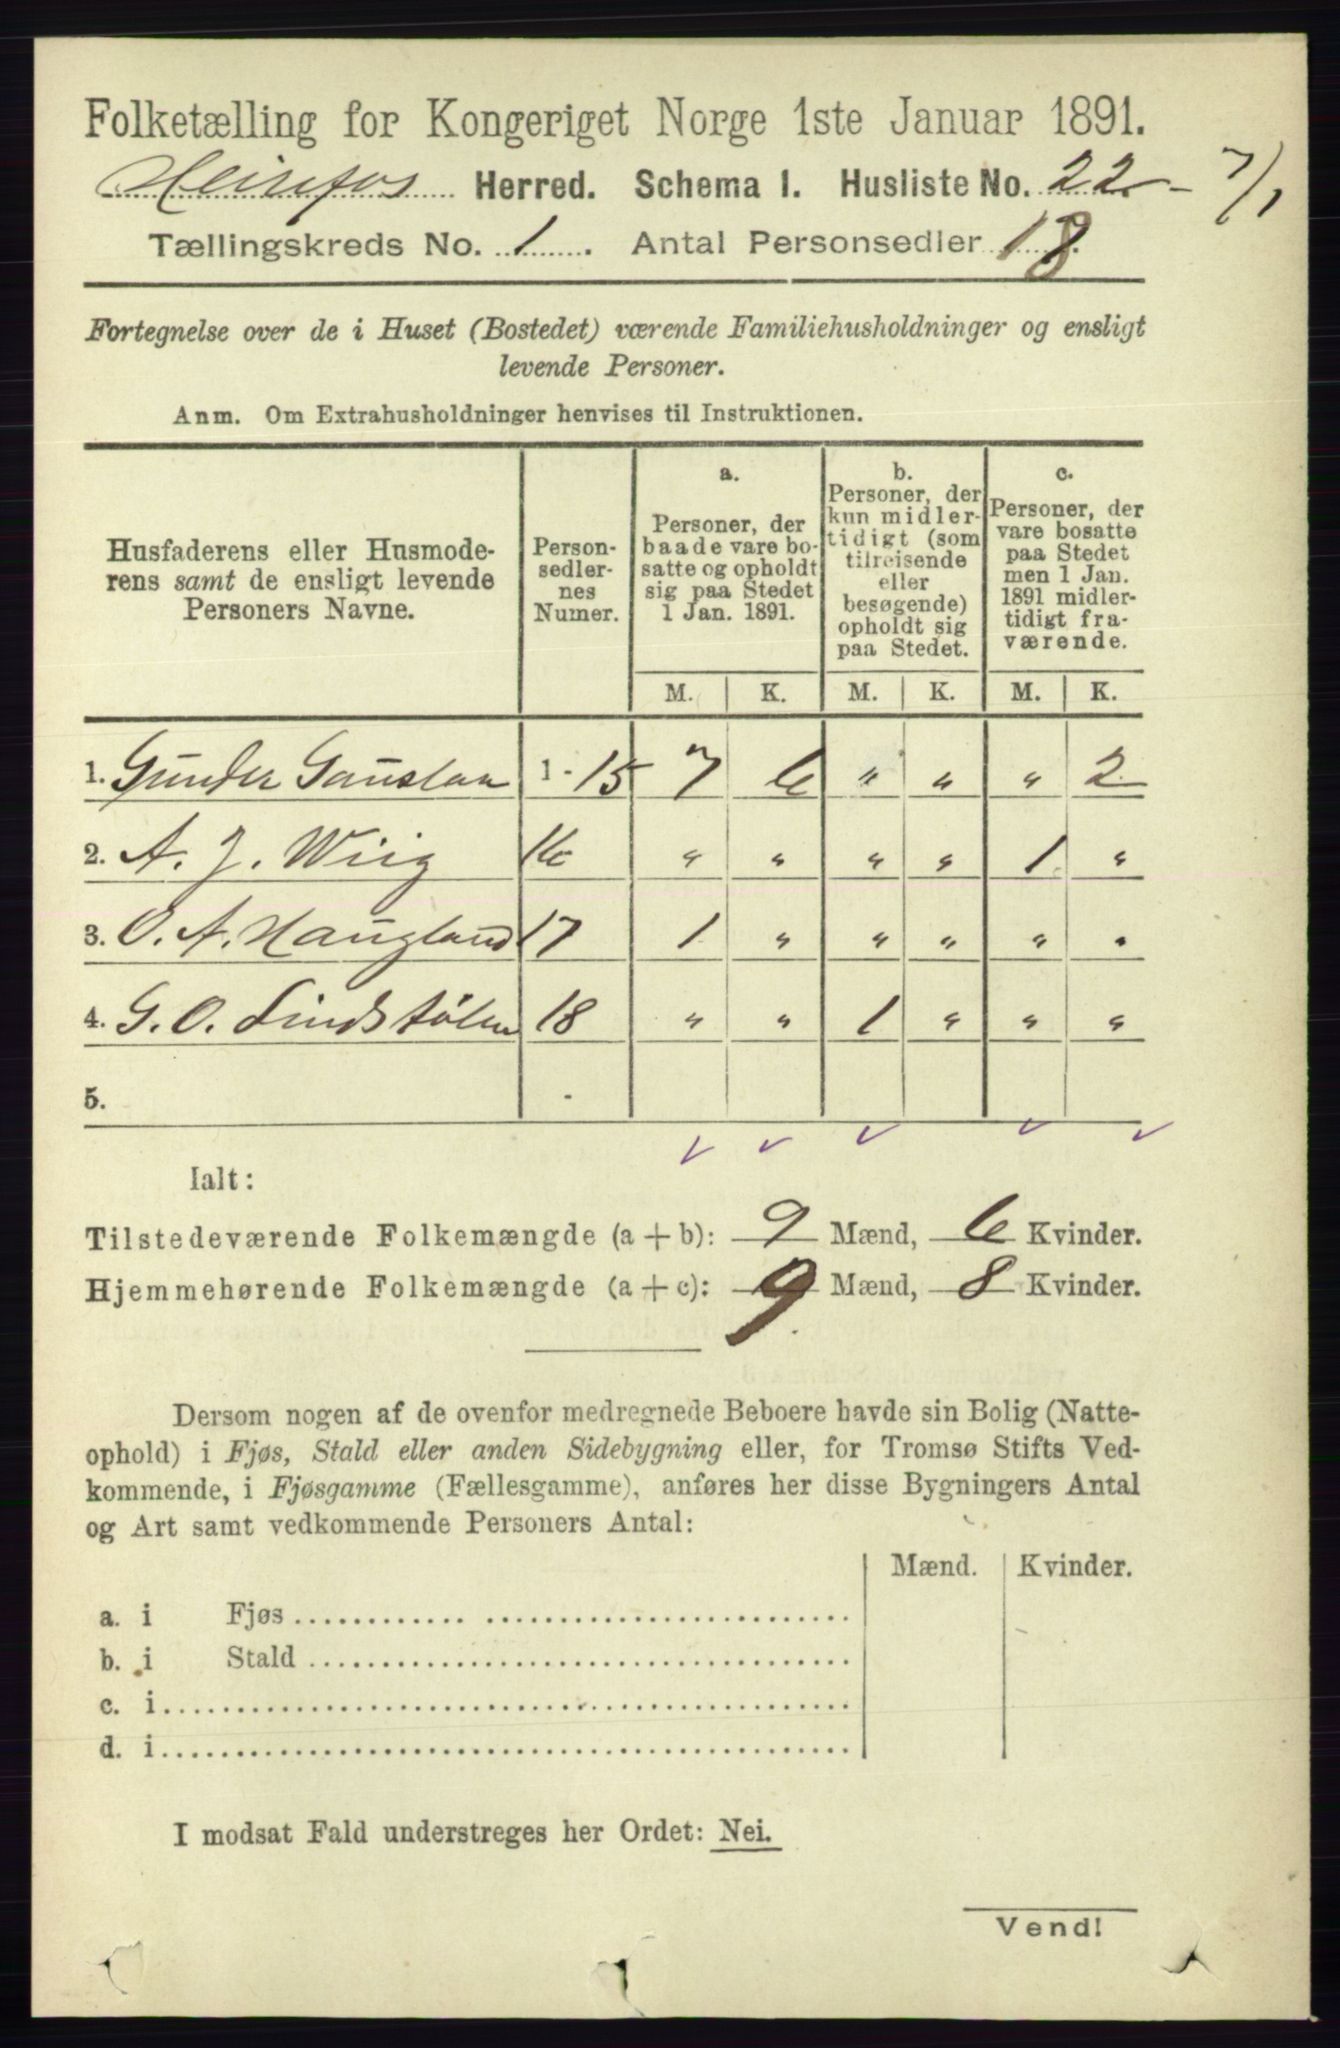 Folketælling for Kongeriget Norge 1ste Januar 1891.
Heirefos Herred. Schema I. Husliste No. 22 - 7/1
Tællingskreds No. 1. Antal Personsedler 18
Fortegnelse over de i Huset (Bostedet) værende Familiehusholdninger og ensligt
levende Personer.
Anm. Om Extrahusholdninger henvises til Instruktionen.
Husfaderens eller Husmoderens samt de ensligt levende Personers Navne.
Personsedlernes Numer.
a.
Personer, der
baade vare bo-
satte og opholdt
sig paa Stedet
1 Jan. 1891.
b.
Personer, der
kun midler-
tidigt (som
tilreisende
eller
besøgende)
opholdt sig
paa Stedet.
c.
Personer, der
vare bosatte
paa Stedet
men 1 Jan.
1891 midler-
tidigt fra-
værende.
M. K. M. K. M. K.
1. Gunder Gauslaa 1 - 15 7 6 " " " 2
2. A. J. Wiig 16 " " " " 1 "
3. O. A. Haugland 17 1 " " " " "
4. G. O. Lindstølen 18 " " 1 " " "
5.
Ialt:
Tilstedeværende Folkemængde (a + b): 9 Mænd, 6 Kvinder.
Hjemmehørende Folkemængde (a + c): 9 Mænd, 8 Kvinder.
Dersom nogen af de ovenfor medregnede Beboere havde sin Bolig (Natte-
ophold) i Fjøs, Stald eller anden Sidebygning eller, for Tromsø Stifts Ved-
kommende, i Fjøsgamme (Fællesgamme), anføres her disse Bygningers Antal
og Art samt vedkommende Personers Antal:
Mænd. Kvinder.
a. i Fjøs
b. i Stald
c. i
d. i
I modsat Fald understreges her Ordet: Nei.
Vend!